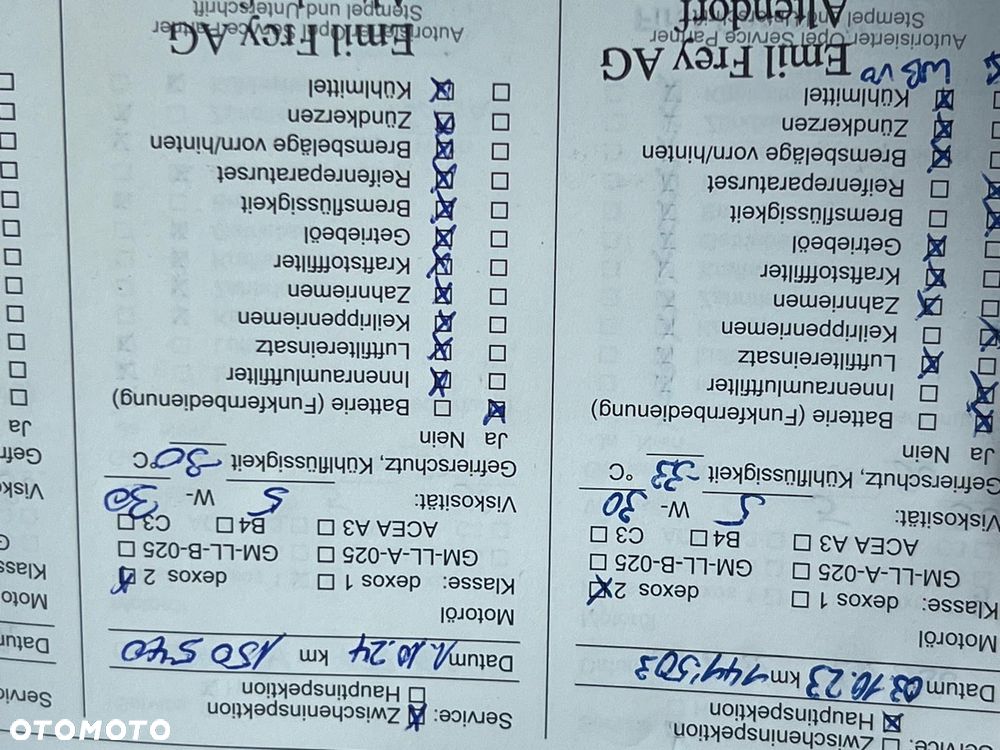 Service: Zwischeninspektion
Hauptinspektion
Datum 03.10.23 km 144'503
Motoröl
Klasse: dexos 1 dexos 2
GM-LL-A-025 GM-LL-B-025
ACEA A3 B4 C3
Viskosität: 5 W- 30
Gefrierschutz, Kühlflüssigkeit -33 °C
Ja Nein
Batterie (Funkfernbedienung)
Innenraumluftfilter
Luftfiltereinsatz
Keilrippenriemen
Zahnriemen
Kraftstofffilter
Getriebeöl
Bremsflüssigkeit
Reifenreparaturset
Bremsbeläge vorn/hinten
Zündkerzen
Kühlmittel
Emil Frey AG
Autorisierter Opel Service Partner
Altendorf
Stempel und Unterschrift
Service: Zwischeninspektion
Hauptinspektion
Datum 10.24 km 150 540
Motoröl
Klasse: dexos 1 dexos 2
GM-LL-A-025 GM-LL-B-025
ACEA A3 B4 C3
Viskosität: 5 W- 30
Gefrierschutz, Kühlflüssigkeit -30 °C
Ja Nein
Batterie (Funkfernbedienung)
Innenraumluftfilter
Luftfiltereinsatz
Keilrippenriemen
Zahnriemen
Kraftstofffilter
Getriebeöl
Bremsflüssigkeit
Reifenreparaturset
Bremsbeläge vorn/hinten
Zündkerzen
Kühlmittel
Emil Frey AG
Autorisierter Opel Service Partner
Stempel und Unterschrift
Servic
Datum
Moto
Klass
G
Visko
Gefri
Ja
OTOMOTO